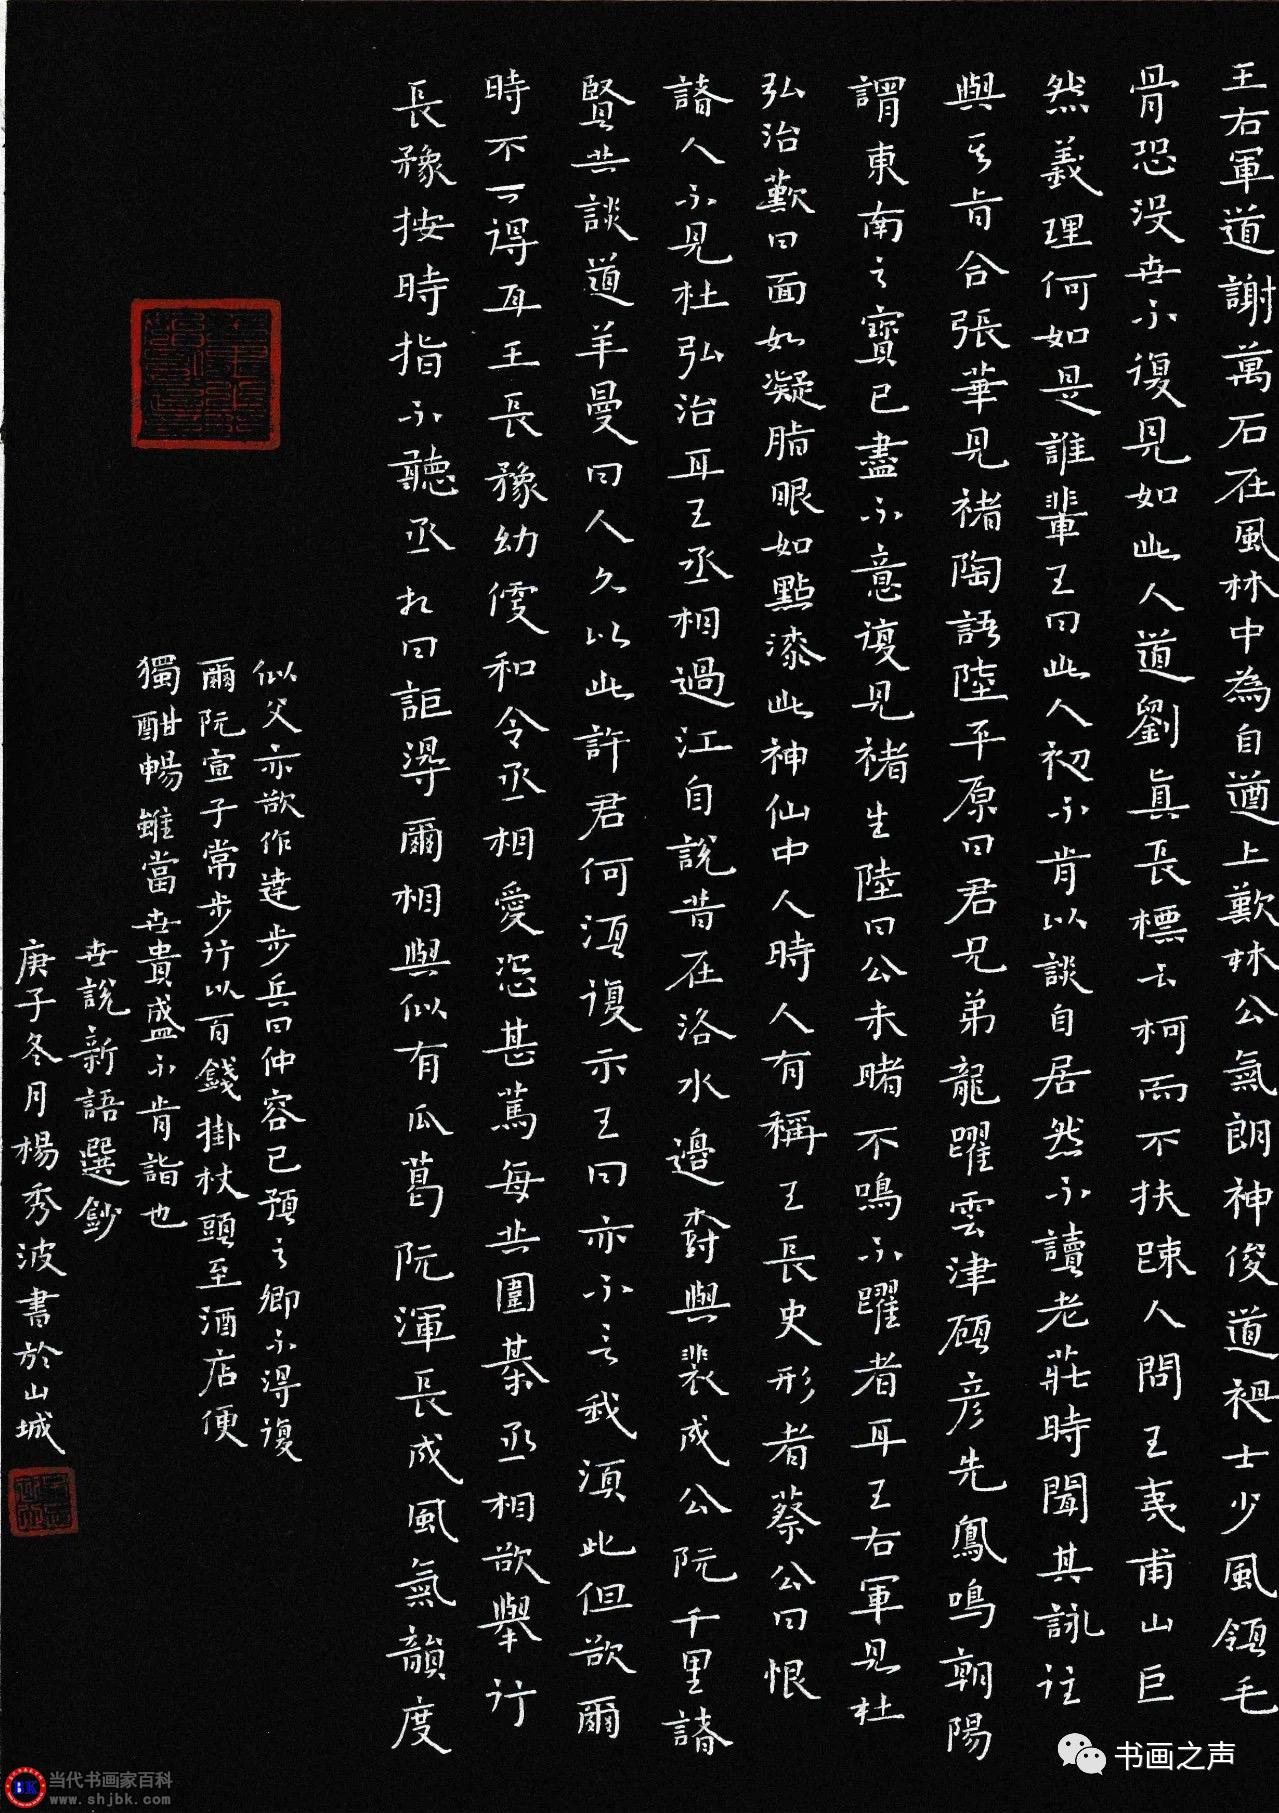 王右軍道謝萬石在林風中為自遒上歎林公氣朗神俊道祖士少風領毛
骨恐沒世不復見如此人道劉真長標云柯而不扶踈人問王夷甫山巨
然義理何如是誰輩王曰此人初不肯以談自居然不讀老莊時聞其詠往
與其旨合張華見褚陶語陸平原曰君兄弟龍躍雲津顧彥先鳳鳴朝陽
謂東南之寶已盡不意復見褚生陸曰公未睹不鳴不躍者耳王右軍見杜
弘治歎曰面如凝脂眼如點漆此神仙中人時人有稱王長史形者蔡公曰恨
諸人不見杜弘治耳王丞相過江自說昔在洛水邊數與裴成公阮千里諸
賢共談道羊曼曰人久以此許君何須復示王曰亦不言我須此但欲爾
時不可得耳王長豫幼便和令丞相愛恣甚篤每共圍棊丞相欲舉行
長豫按時指不聽丞相曰詎得爾相與似有瓜葛阮渾長成風氣韻度
似父亦欲作達步兵曰仲容已預之卿不得復
爾阮宣子常步行以百錢掛杖頭至酒店便
獨酣暢雖當世貴盛不肯詣也
世說新語選鈔
庚子冬月楊秀波書於山城
书画之声
BK
当代书画家百科
www.shjbk.com